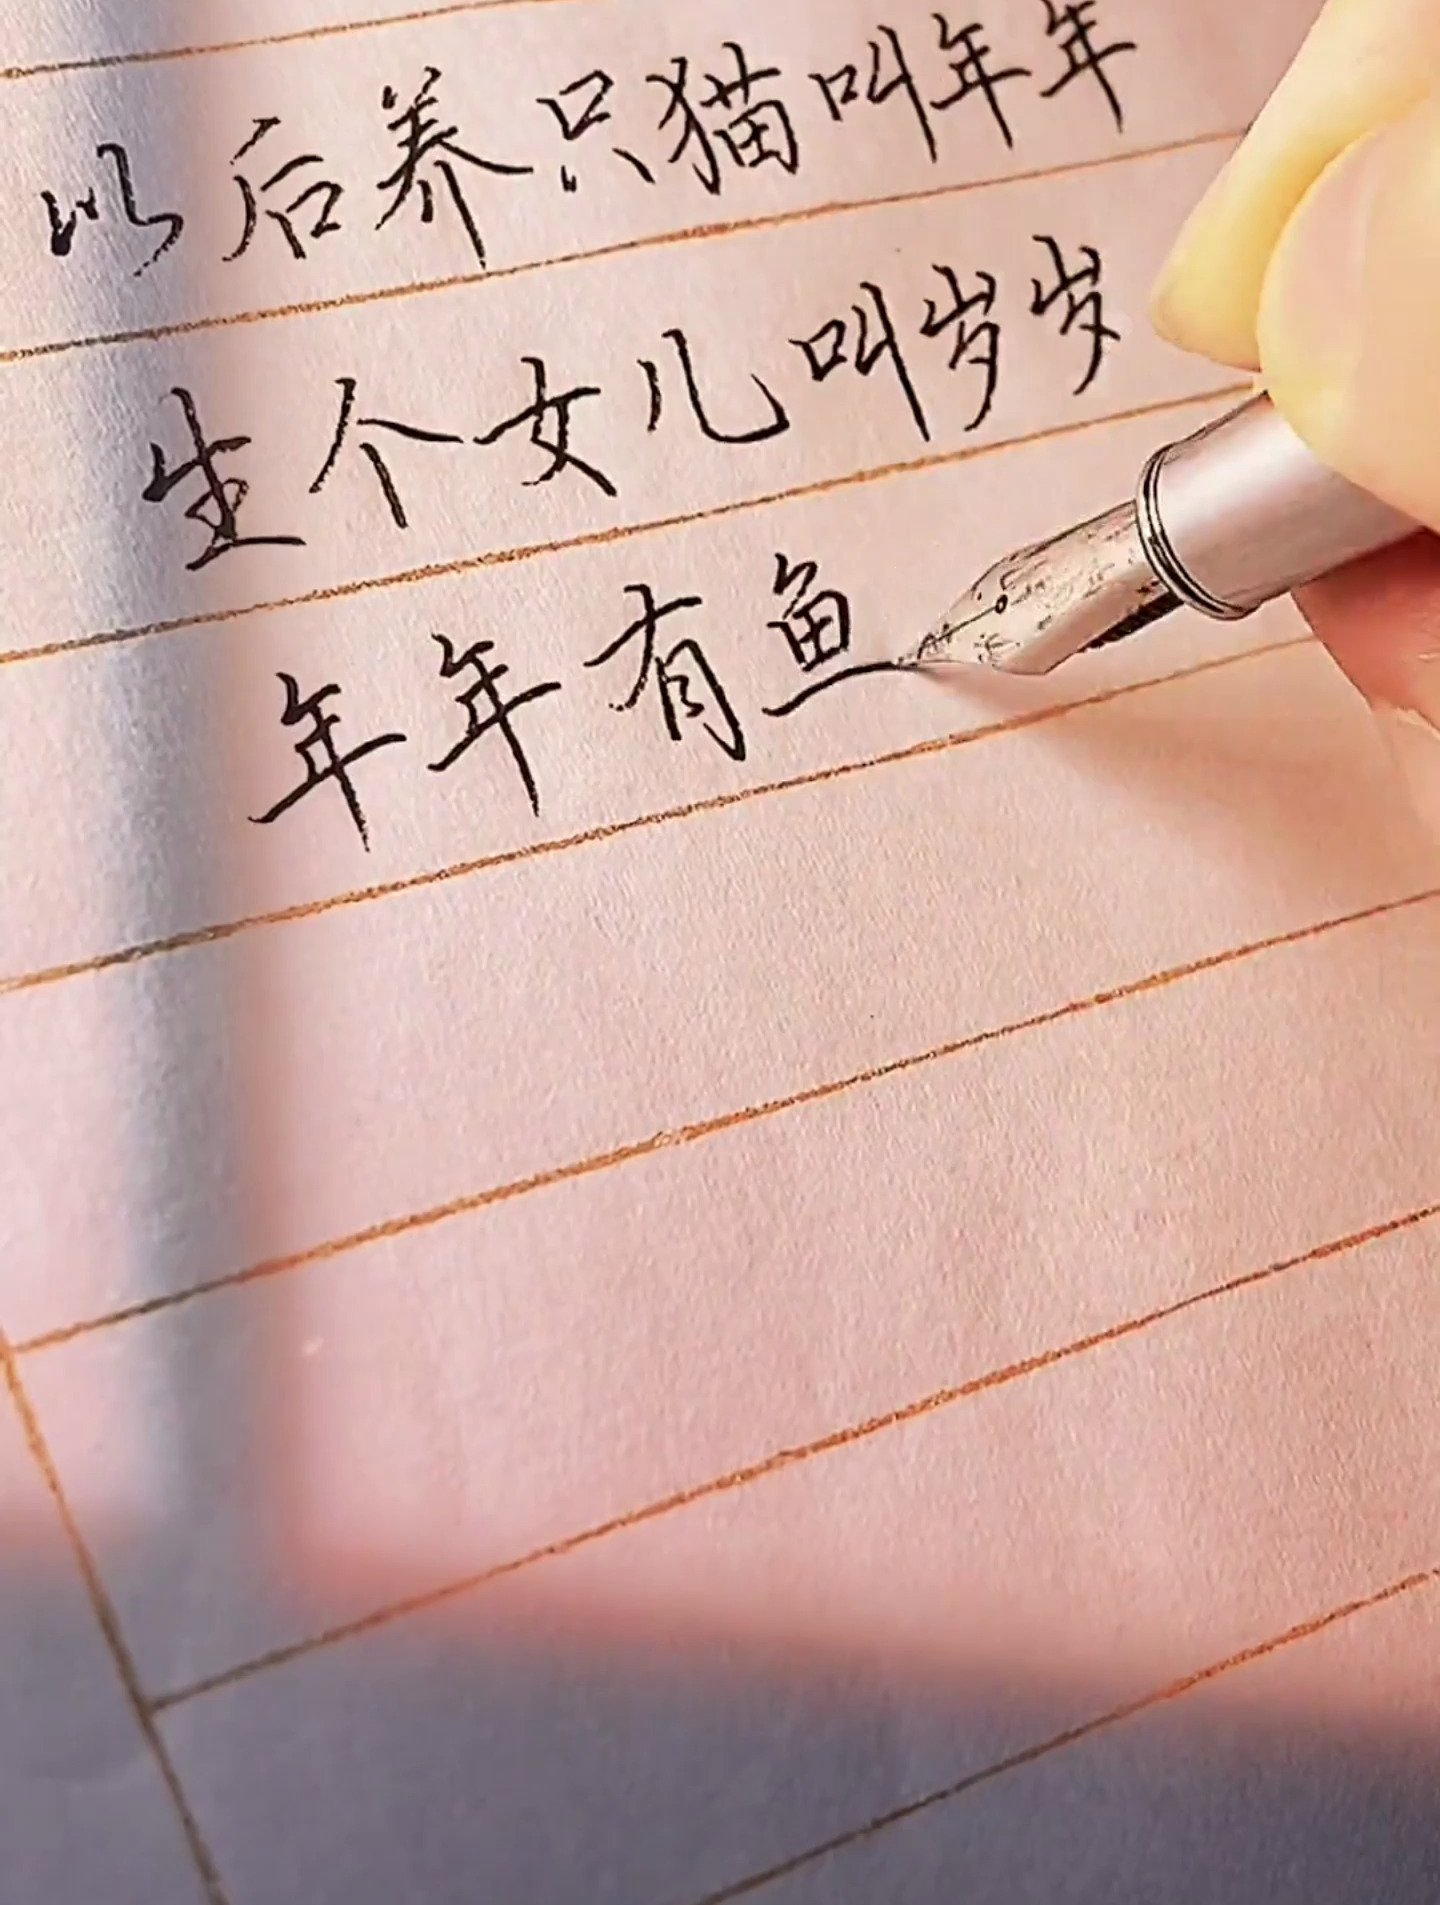 以后养只猫叫年年
生个女儿叫岁岁
年年有鱼